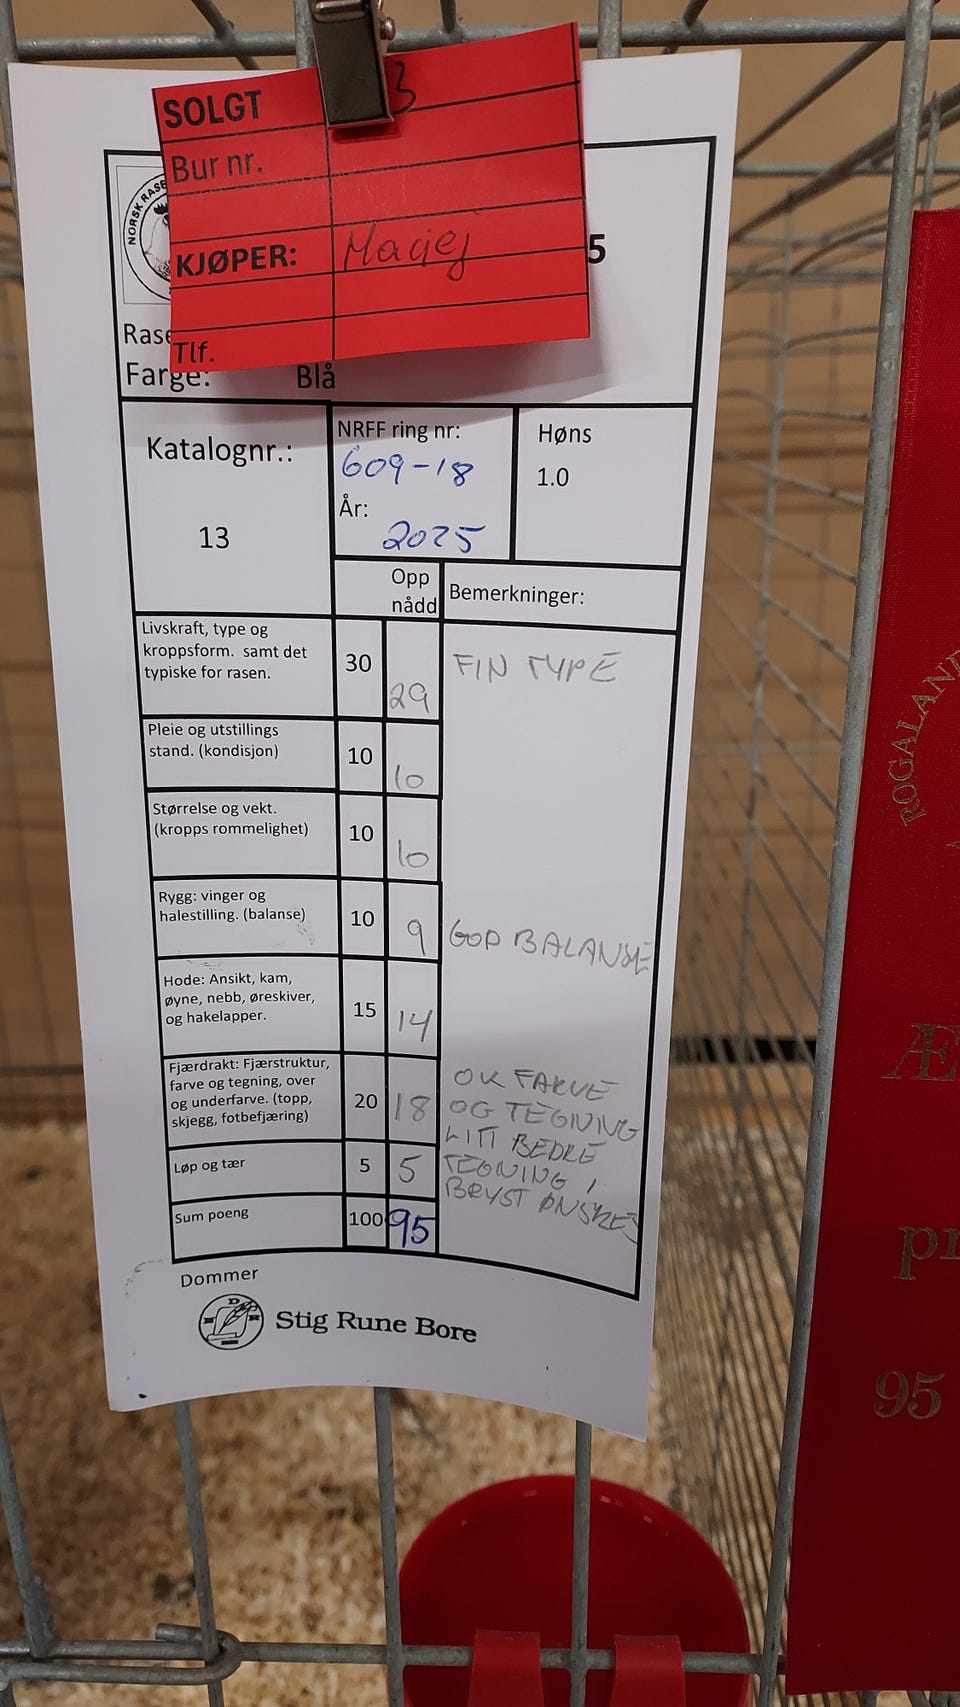 SOLGT
3
Bur nr.
KJØPER: Maciej
Tlf.
NORSK RASE
5
Rase
Farge: Blå
Katalognr.:
13
NRFF ring nr:
609-18
År:
2025
Høns
1.0
Opp
nådd
Bemerkninger:
Livskraft, type og
kroppsform. samt det
typiske for rasen.
30
29
FIN TYPE
Pleie og utstillings
stand. (kondisjon)
10
10
Størrelse og vekt.
(kropps rommelighet)
10
10
Rygg: vinger og
halestilling. (balanse)
10
9
GOD BALANSE
Hode: Ansikt, kam,
øyne, nebb, øreskiver,
og hakelapper.
15
14
Fjærdrakt: Fjærstruktur,
farve og tegning, over
og underfarve. (topp,
skjegg, fotbefjæring)
20
18
OK FARVE
OG TEGNING
LITT BEDRE
TEGNING I
BRYST ØNSKES
Løp og tær
5
5
Sum poeng
100
95
Dommer
Stig Rune Bore
ROGALAND
Æ
pr
95